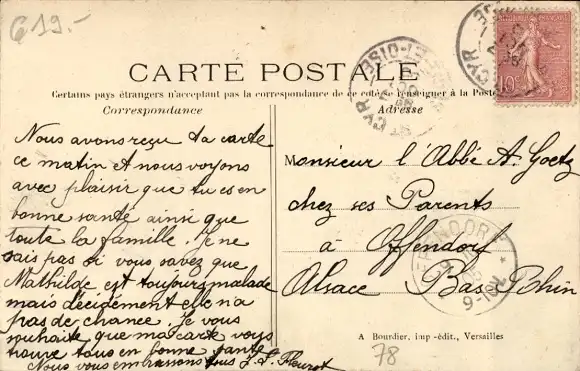 G 19.-
CARTE POSTALE
Certains pays étrangers n'acceptant pas la correspondance de ce côté, se renseigner à la Poste
Correspondance
Nous avons reçu ta carte
ce matin et nous voyons
avec plaisir que tu es en
bonne santé ainsi que
toute la famille. Je ne
sais pas si vous savez que
Mathilde est toujours malade
mais décidément elle n'a
pas de chance. Je vous
souhaite que ma carte vous
trouve tous en bonne santé
Nous vous embrassons tous J. L. Fleurot
Adresse
Monsieur l'Abbé A. Goetz
chez ses Parents
à Offendorf
Alsace Bas Rhin
A Bourdier, imp-édit., Versailles
78
ST CYR
SEINE-ET-OISE
CYR
10